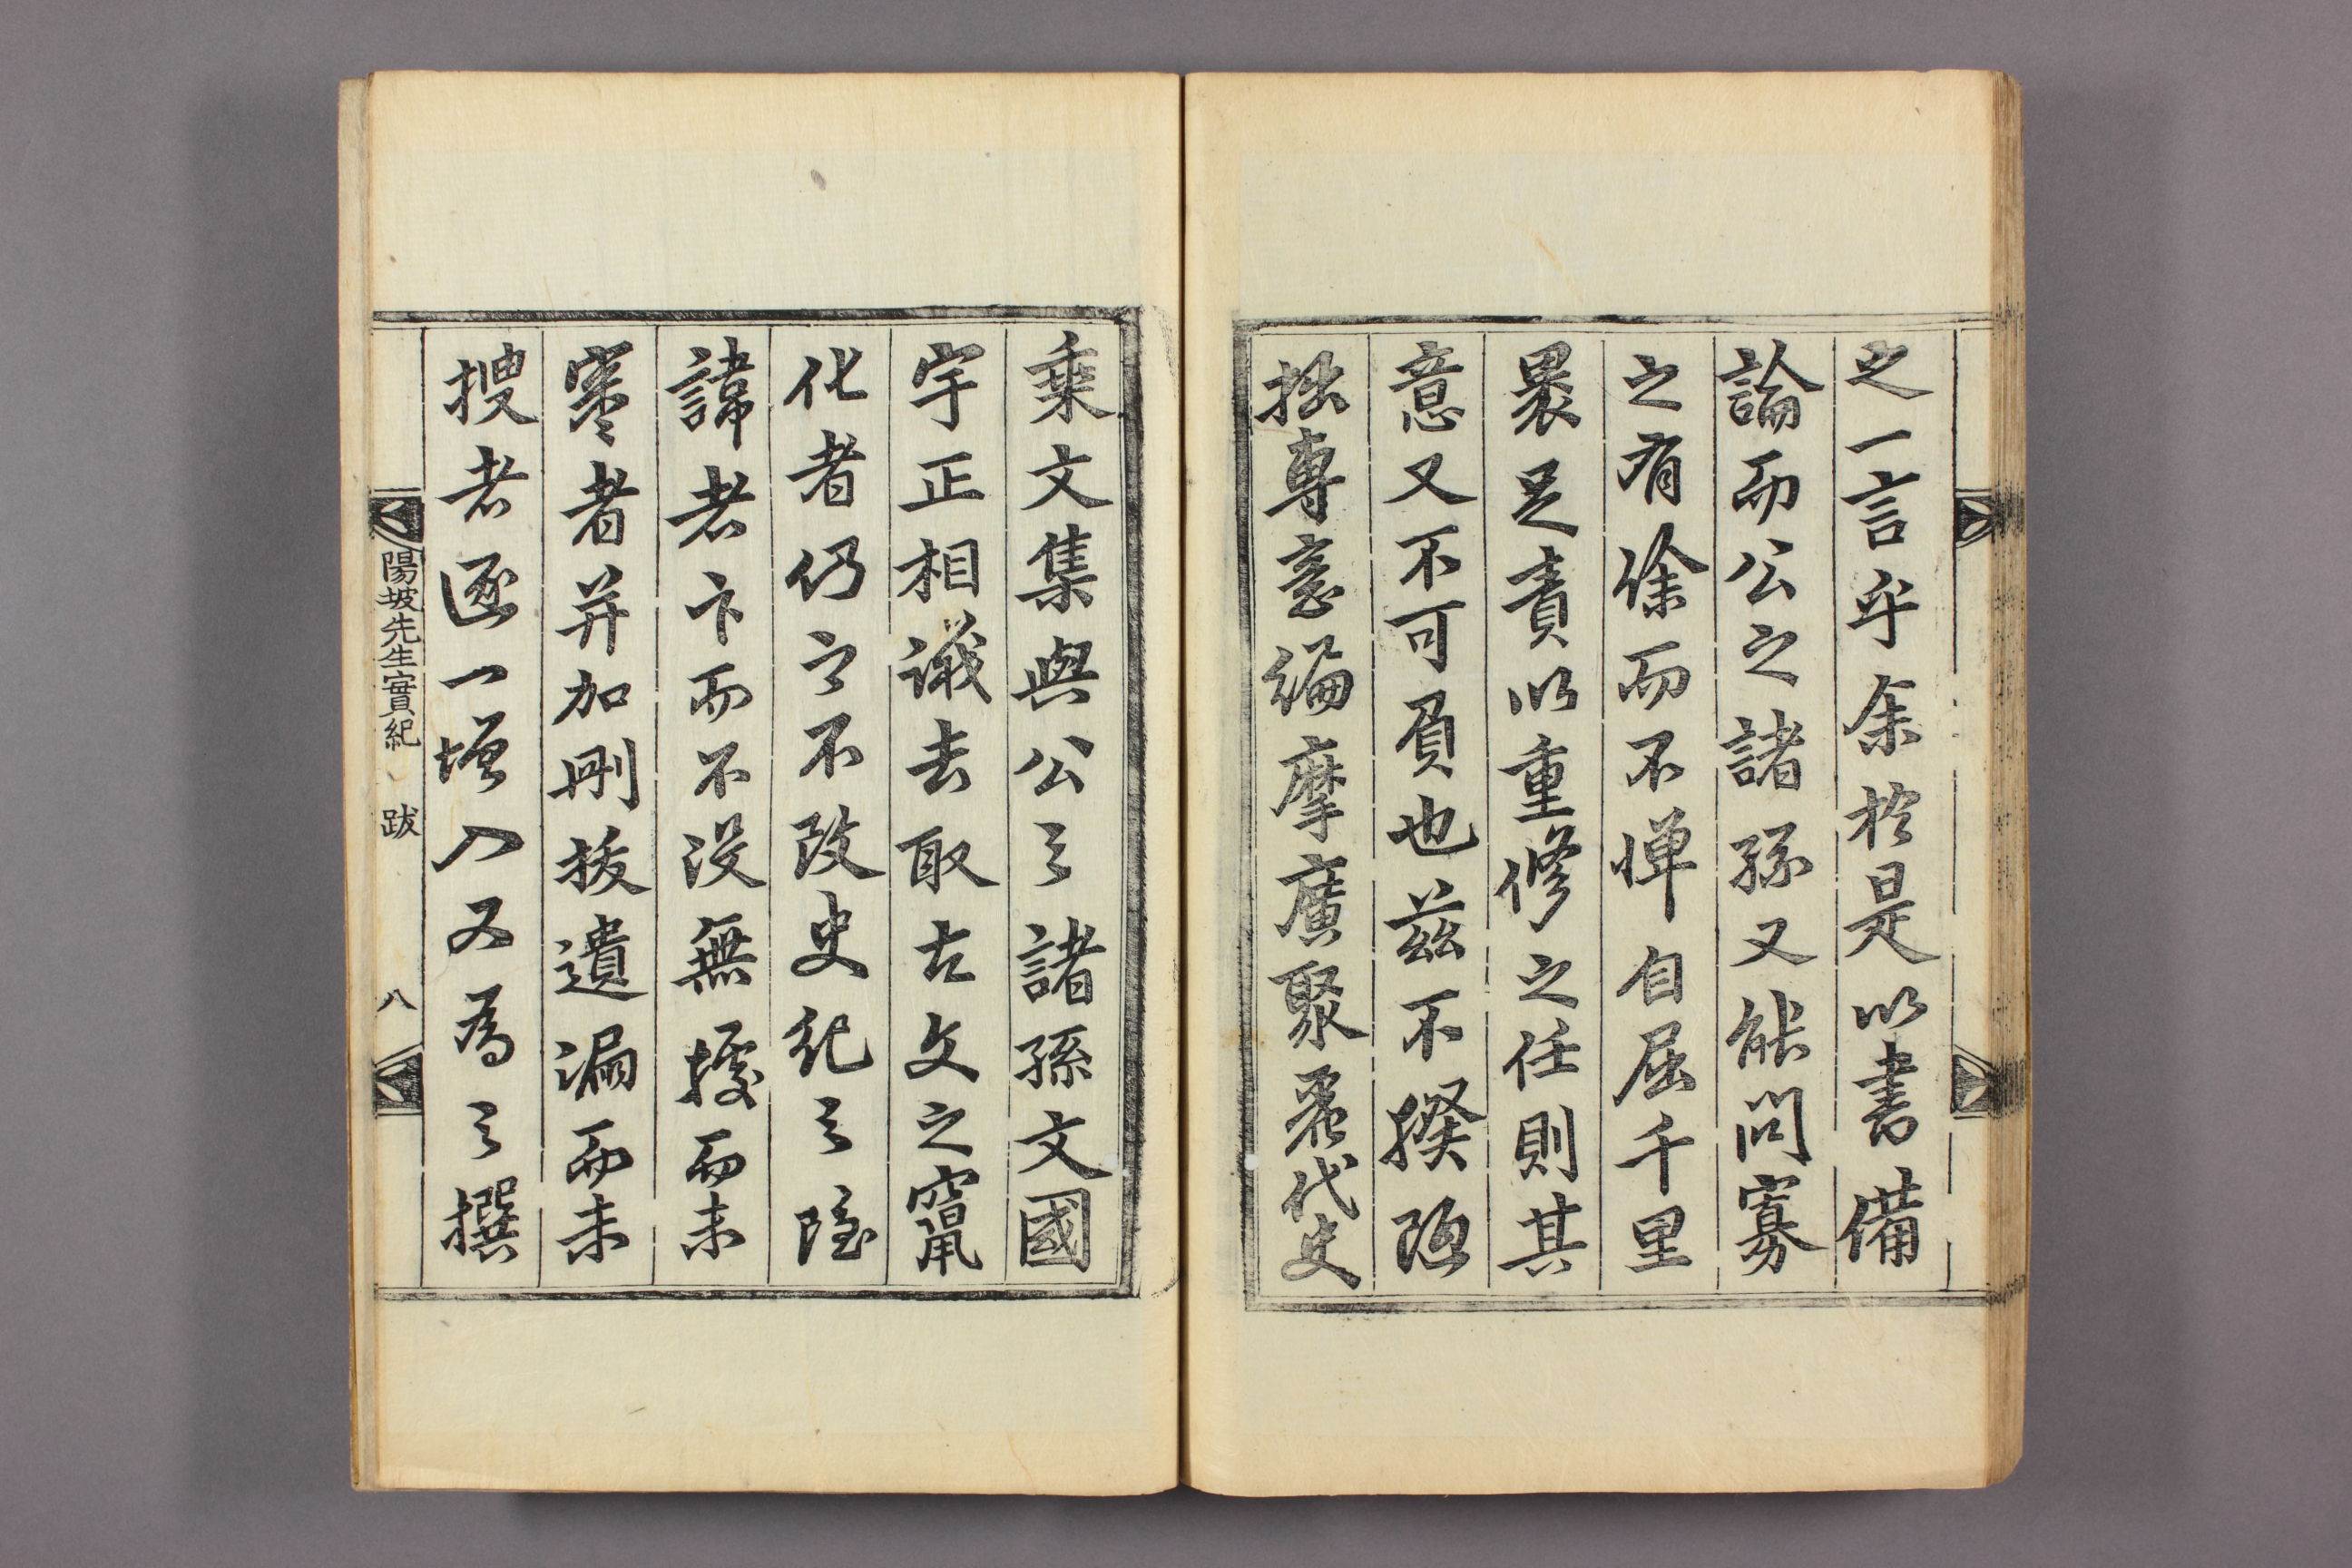 之一言乎余於是以書備
論而公之諸孫又能問寡
之有餘而不憚自屈千里
裹足責以重修之任則其
意又不可負也玆不揆孤
拙專意編摩廣聚歷代史
乘文集與公之諸孫文國
宇正相議去取古文之竄
化者仍之不改史紀之隱
諱者卞而不沒無據而未
寒者并加刪拔遺漏而未
搜者逐一增入又爲之撰
陽坡先生實紀 跋 八